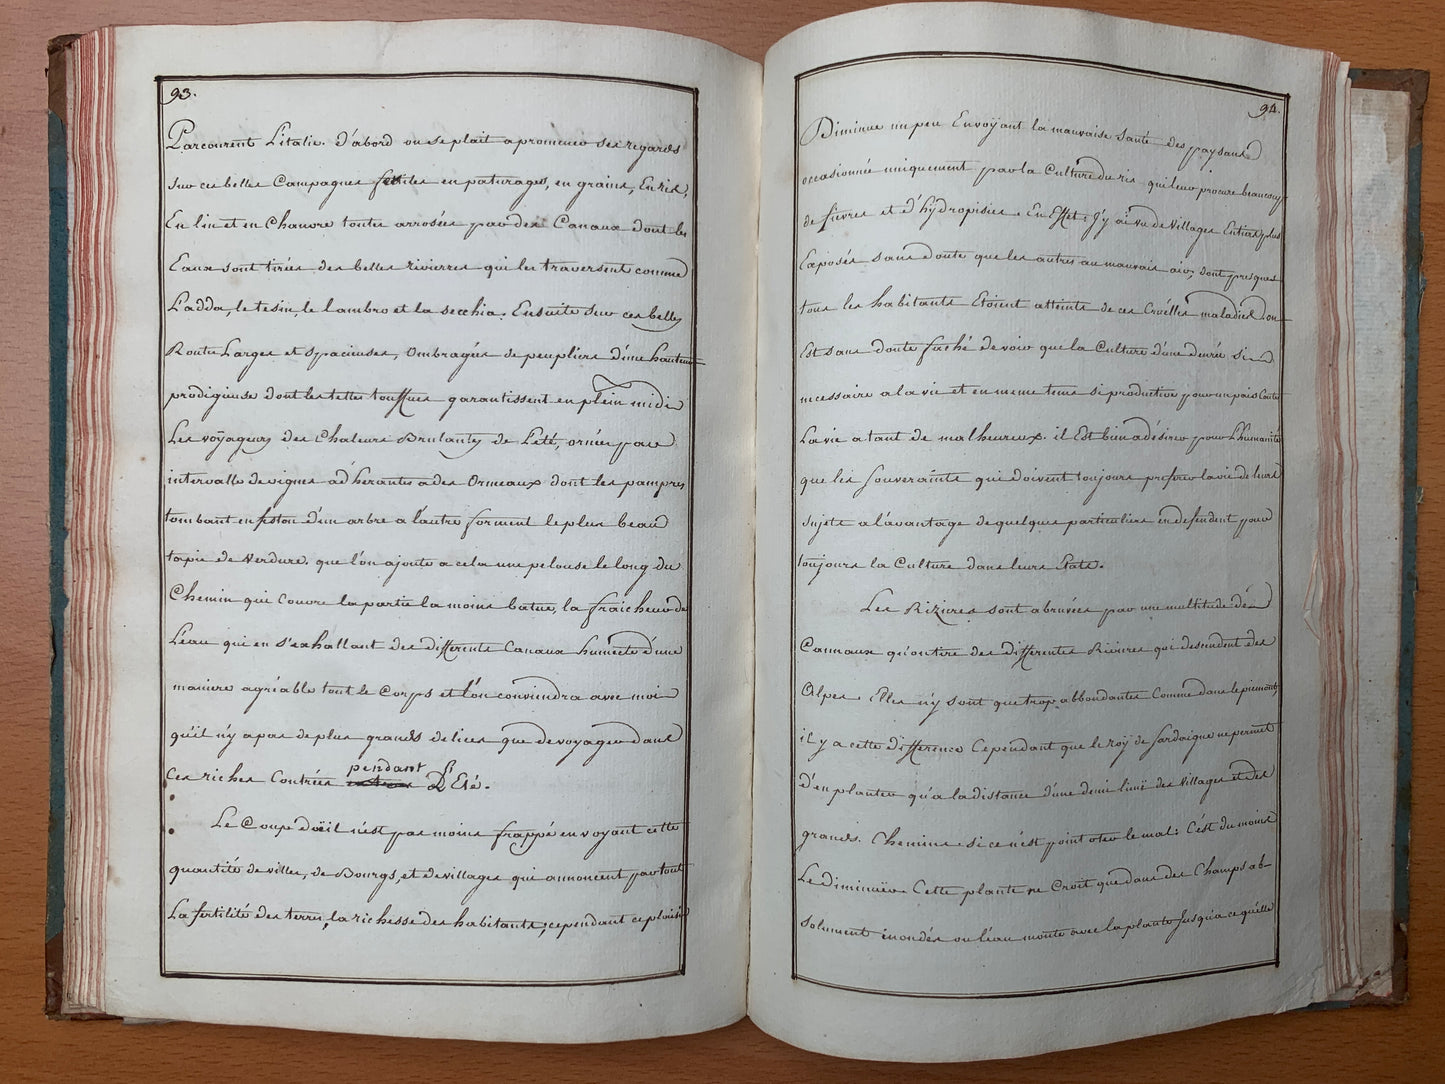 93.
Parcourent L'italie. d'abord on se plait a promener ses regards
sur ces belles Campagnes fertiles en paturages, en grains, En ris,
En lin et en Chanvre toutes arrosées par des Canaux dont les
Eaux sont tirées des belles rivierres qui les traversent comme
L'adda, le tesin, le lambro et la secchia. Ensuite sur ces belles
Routes Larges et spacieuses, ombragées de peupliers d'une hauteur
prodigieuse dont les tettes touffues garantissent en plein midi
Les voÿageurs des Chaleurs Brulantes de L'eté, ornées par
intervalle de vignes adherantes a des Ormeaux dont les pampres
tombant en feston d'un arbre a l'autre forment le plus beau
tapis de verdure. que l'on ajoute a cela une pelouse le long du
Chemin qui couvre la partie la moins batue, la fraicheur de
L'eau qui en s'exhallant des differents Canaux humecte d'une
maniere agréable tout le Corps et l'on conviendra avec moi
qu'il n'y a pas de plus grands delices que de voyager dans
Ces riches Contrées pendant L'Eté.
Le Coup d'oëil n'est pas moins frappé en voyant cette
quantité de villes, de Bourgs, et de villages qui annoncent partout
La fertilité des terres, la richesse des habitants; cependant ce plaisir
94.
Diminue un peu En voÿant la mauvaise Santé des paysans
occasionnée uniquement par la Culture du ris qui leur procure beaucoup
de fievres et d'hydropisies. En Effet; J'y ai vu de villages Entiers plus
Exposés sans doute que les autres au mauvais air, dont presques
tous les habitants Etoient atteints de ces Cruëlles maladies. on
Est sans doute faché de voir que la Culture d'une denrée si
necessaire a la vie et en meme tems si productive pour un pais Coute
La vie a tant de malheureux. il Est bien a désirer pour L'humanité
que les Souveraints qui doivent toujours preferer la vie de leurs
sujets a l'avantage de quelques particuliers en defendent pour
toujours la Culture dans leurs Etats.
Les Rizieres sont abruvées par une multitude de
Cannaux qu'on tire des differentes Rivieres qui descendent des
Alpes. Elles n'y sont que trop abbondantes Comme dans le piemont,
il y a cette difference Cependant que le roÿ de Sardaigne ne permet
d'en planter qu'a la distance d'une demi lieuë des villages et des
grands. Chemins. si ce n'est point oter le mal: C'est du moins
Le diminuër. Cette plante ne Croit que dans des Champs ab-
solument inondés ou l'eau monte avec la plante Jusqu'a ce qu'elle